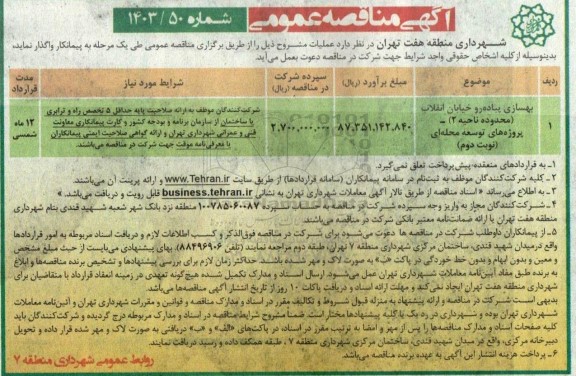 آگهی مناقصه عمومی
شماره ۵۰ / ۱۴۰۳
شهرداری منطقه هفت تهران در نظر دارد عملیات مشروح ذیل را از طریق برگزاری مناقصه عمومی طی یک مرحله به پیمانکار واگذار نماید،
بدینوسیله از کلیه اشخاص حقوقی واجد شرایط جهت شرکت در مناقصه دعوت بعمل می‌آید.
ردیف موضوع مبلغ برآورد (ریال) سپرده شرکت در مناقصه (ریال) شرایط مورد نیاز مدت قرارداد
۱
بهسازی پیاده‌رو خیابان انقلاب
(محدوده ناحیه ۲) –
پروژه‌های توسعه محله‌ای
(نوبت دوم)
۸۷,۳۵۱,۱۴۲,۸۴۰
۲,۷۰۰,۰۰۰,۰۰۰
شرکت‌کنندگان موظف به ارائه صلاحیت پایه حداقل ۵ تخصص راه و ترابری
یا ساختمان از سازمان برنامه و بودجه کشور و کارت پیمانکاری معاونت
فنی و عمرانی شهرداری تهران و ارائه گواهی صلاحیت ایمنی پیمانکاران
یا معرفی‌نامه موقت جهت شرکت در مناقصه می‌باشند.
۱۲ ماه
شمسی
۱ـ به قراردادهای منعقده، پیش‌پرداخت تعلق نمی‌گیرد.
۲ـ کلیه شرکت‌کنندگان موظف به ثبت‌نام در سامانه پیمانکاران (سامانه قراردادها) از طریق سایت www.Tehran.ir و ارائه پرینت آن می‌باشند.
۳ـ به اطلاع می‌رساند « اسناد مناقصه از طریق تالار آگهی معاملات شهرداری تهران به نشانی business.tehran.ir قابل رویت و دریافت می‌باشد. »
۴ـ شرکت‌کنندگان مجاز به واریز وجه سپرده شرکت در مناقصه به حساب سپرده ۱۰۰۷۸۵۰۶۰۰۸۷ منطقه نزد بانک شهر شعبه شهید قندی بنام شهرداری
منطقه هفت تهران یا ارائه ضمانتنامه معتبر بانکی شرکت در مناقصه می‌باشند.
۵ـ از پیمانکاران داوطلب شرکت در مناقصه ها دعوت می‌شود برای شرکت در مناقصه فوق‌الذکر و کسب اطلاعات لازم و دریافت اسناد مربوطه به امور قراردادها
واقع در میدان شهید قندی، ساختمان مرکزی شهرداری منطقه ۷ تهران، طبقه دوم مراجعه نمایند (تلفن ۸۸۴۹۶۹۰۶). بهای پیشنهادی می‌بایست از حیث مبلغ مشخص
و معین و بدون ابهام و بدون خط خوردگی در پاکت «ج» به صورت لاک و مهر شده باشد. حداکثر زمان لازم برای بررسی پیشنهادها و تشخیص برنده مناقصه‌ها و ابلاغ
به برنده طبق مفاد آیین‌نامه معاملات شهرداری تهران عمل می‌شود. ارسال اسناد و مدارک تکمیل شده هیچ‌گونه تعهدی در زمینه انعقاد قرارداد با متقاضیان برای
شهرداری منطقه هفت تهران ایجاد نمی‌کند و مهلت ارائه اسناد و دریافت پاکات ۱۰ روز از تاریخ انتشار آگهی مناقصه‌ها می‌باشد.
بدیهی است شرکت در مناقصه و ارائه پیشنهاد به منزله قبول شروط و تکالیف مقرر در اسناد و مدارک مناقصه و قوانین و مقررات شهرداری تهران و آئین‌نامه معاملات
شهرداری تهران بوده و شهرداری در رد یک یا کلیه پیشنهادها مختار است. ضمناً مشروح شرایط مناقصه در اسناد و مدارک مربوطه درج گردیده و شرکت‌کنندگان باید
کلیه صفحات اسناد و مدارک مناقصه‌ها را پس از مهر و امضا به ترتیب مقرر در اسناد، در پاکت‌های «الف» و «ب» دریافتی به صورت لاک و مهر شده قرار داده و تحویل
دبیرخانه مرکزی، واقع در میدان شهید قندی، ساختمان مرکزی شهرداری منطقه ۷ ، طبقه همکف داده و رسید دریافت نمایند.
۶ـ پرداخت هزینه انتشار این آگهی به عهده برنده مناقصه می‌باشد.
روابط عمومی شهرداری منطقه ۷